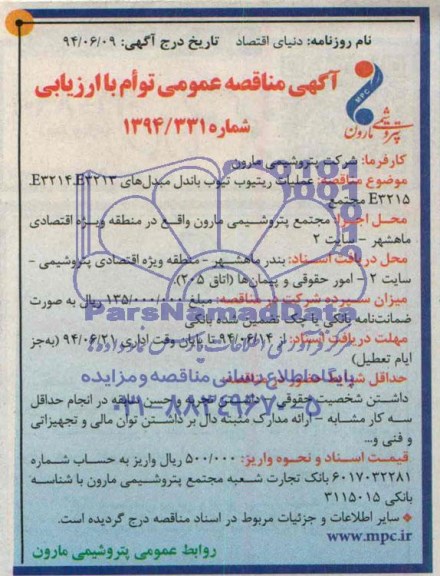 نام روزنامه: دنیای اقتصاد    تاریخ درج آگهی: ۹۴/۰۶/۰۹
MPC
پتروشیمی مارون
آگهی مناقصه عمومی توأم با ارزیابی
شماره ۱۳۹۴/۳۳۱
کارفرما: شرکت پتروشیمی مارون
موضوع مناقصه: عملیات ریتیوب تیوب باندل مبدل‌های E۳۲۱۳، E۳۲۱۴،
E۳۲۱۵ مجتمع
محل اجرا: مجتمع پتروشیمی مارون واقع در منطقه ویژه اقتصادی
ماهشهر - سایت ۲
محل دریافت اسناد: بندر ماهشهر - منطقه ویژه اقتصادی پتروشیمی -
سایت ۲ - امور حقوقی و پیمان‌ها (اتاق ۲۰۵).
میزان سپرده شرکت در مناقصه: مبلغ ۱۳۵/۰۰۰/۰۰۰ ریال به صورت
ضمانت‌نامه بانکی یا چک تضمین شده بانکی
مهلت دریافت اسناد: از ۹۴/۰۶/۱۴ تا پایان وقت اداری ۹۴/۰۶/۲۱ (به‌جز
ایام تعطیل)
حداقل شرایط حضور در مناقصه:
داشتن شخصیت حقوقی - داشتن تجربه و حسن سابقه در انجام حداقل
سه کار مشابه - ارائه مدارک مثبته دال بر داشتن توان مالی و تجهیزاتی
و فنی و...
قیمت اسناد و نحوه واریز: ۵۰۰/۰۰۰ ریال واریز به حساب شماره
۶۰۱۷۰۳۲۲۸۱ بانک تجارت شعبه مجتمع پتروشیمی مارون با شناسه
بانکی ۳۱۱۵۰۱۵
سایر اطلاعات و جزئیات مربوط در اسناد مناقصه درج گردیده است.
www.mpc.ir
روابط عمومی پتروشیمی مارون
ParsNamadData
پایگاه اطلاع رسانی مناقصه و مزایده
۰۲۱-۸۸۳۴۹۶۷۰-۵